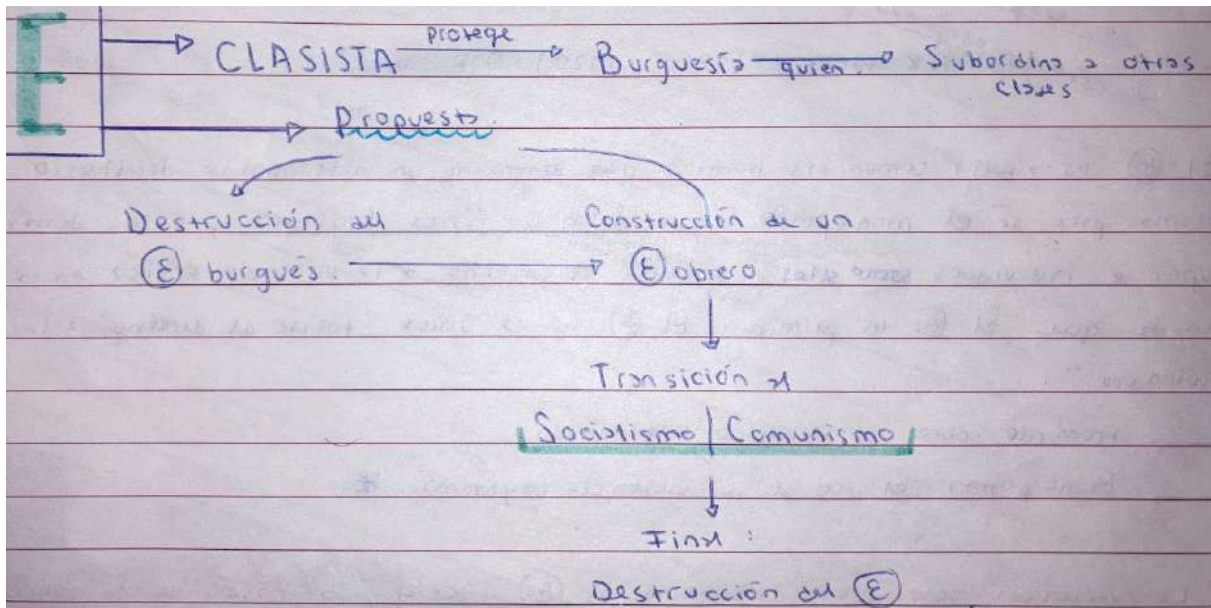 E
CLASISTA protege Burguesía quien Subordina a otras
clases
Propuesta
Destrucción del Construcción de un
Ⓔ burgués Ⓔ obrero
Transición al
Socialismo | Comunismo
Final:
Destrucción del Ⓔ